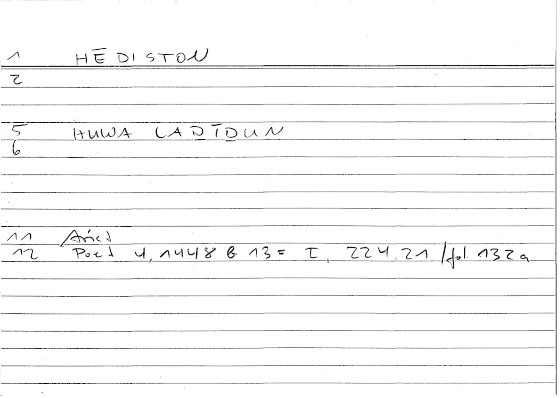 1 HĒDISTON
2
5 HUWA LAḎĪḎUN
6
11 Arist
12 Poet 4, 1448 b 13 = I, 224,21 /fol 132a